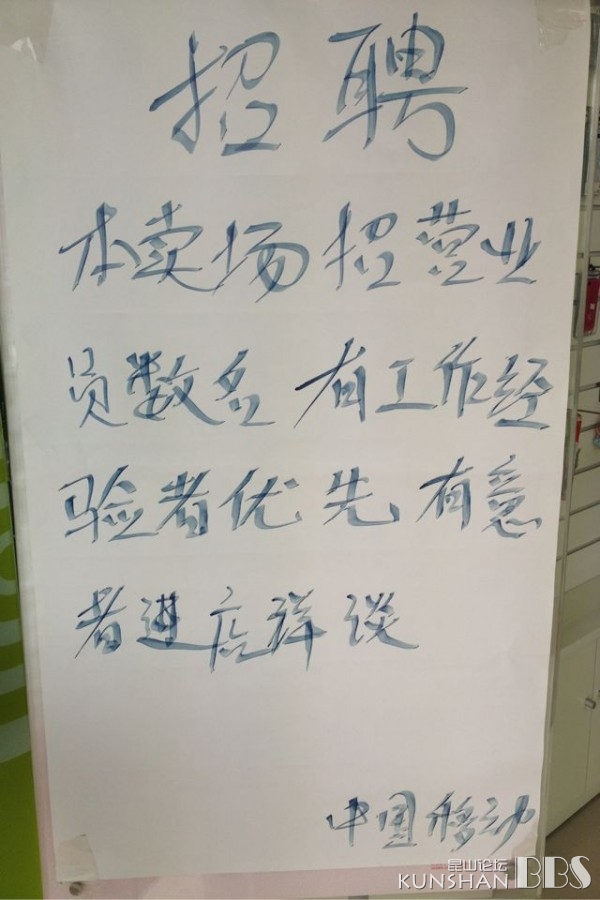 招聘
本卖场招营业
员数名 有工作经
验者优先 有意
者进店详谈
中国移动
昆山论坛
KUNSHAN BBS